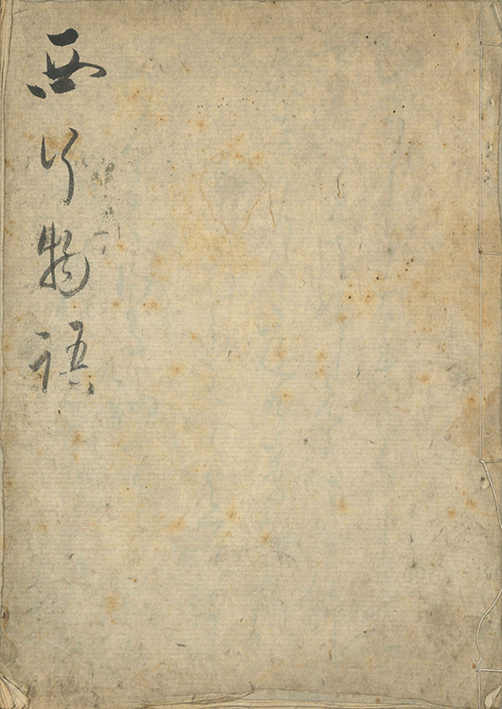 西行物語